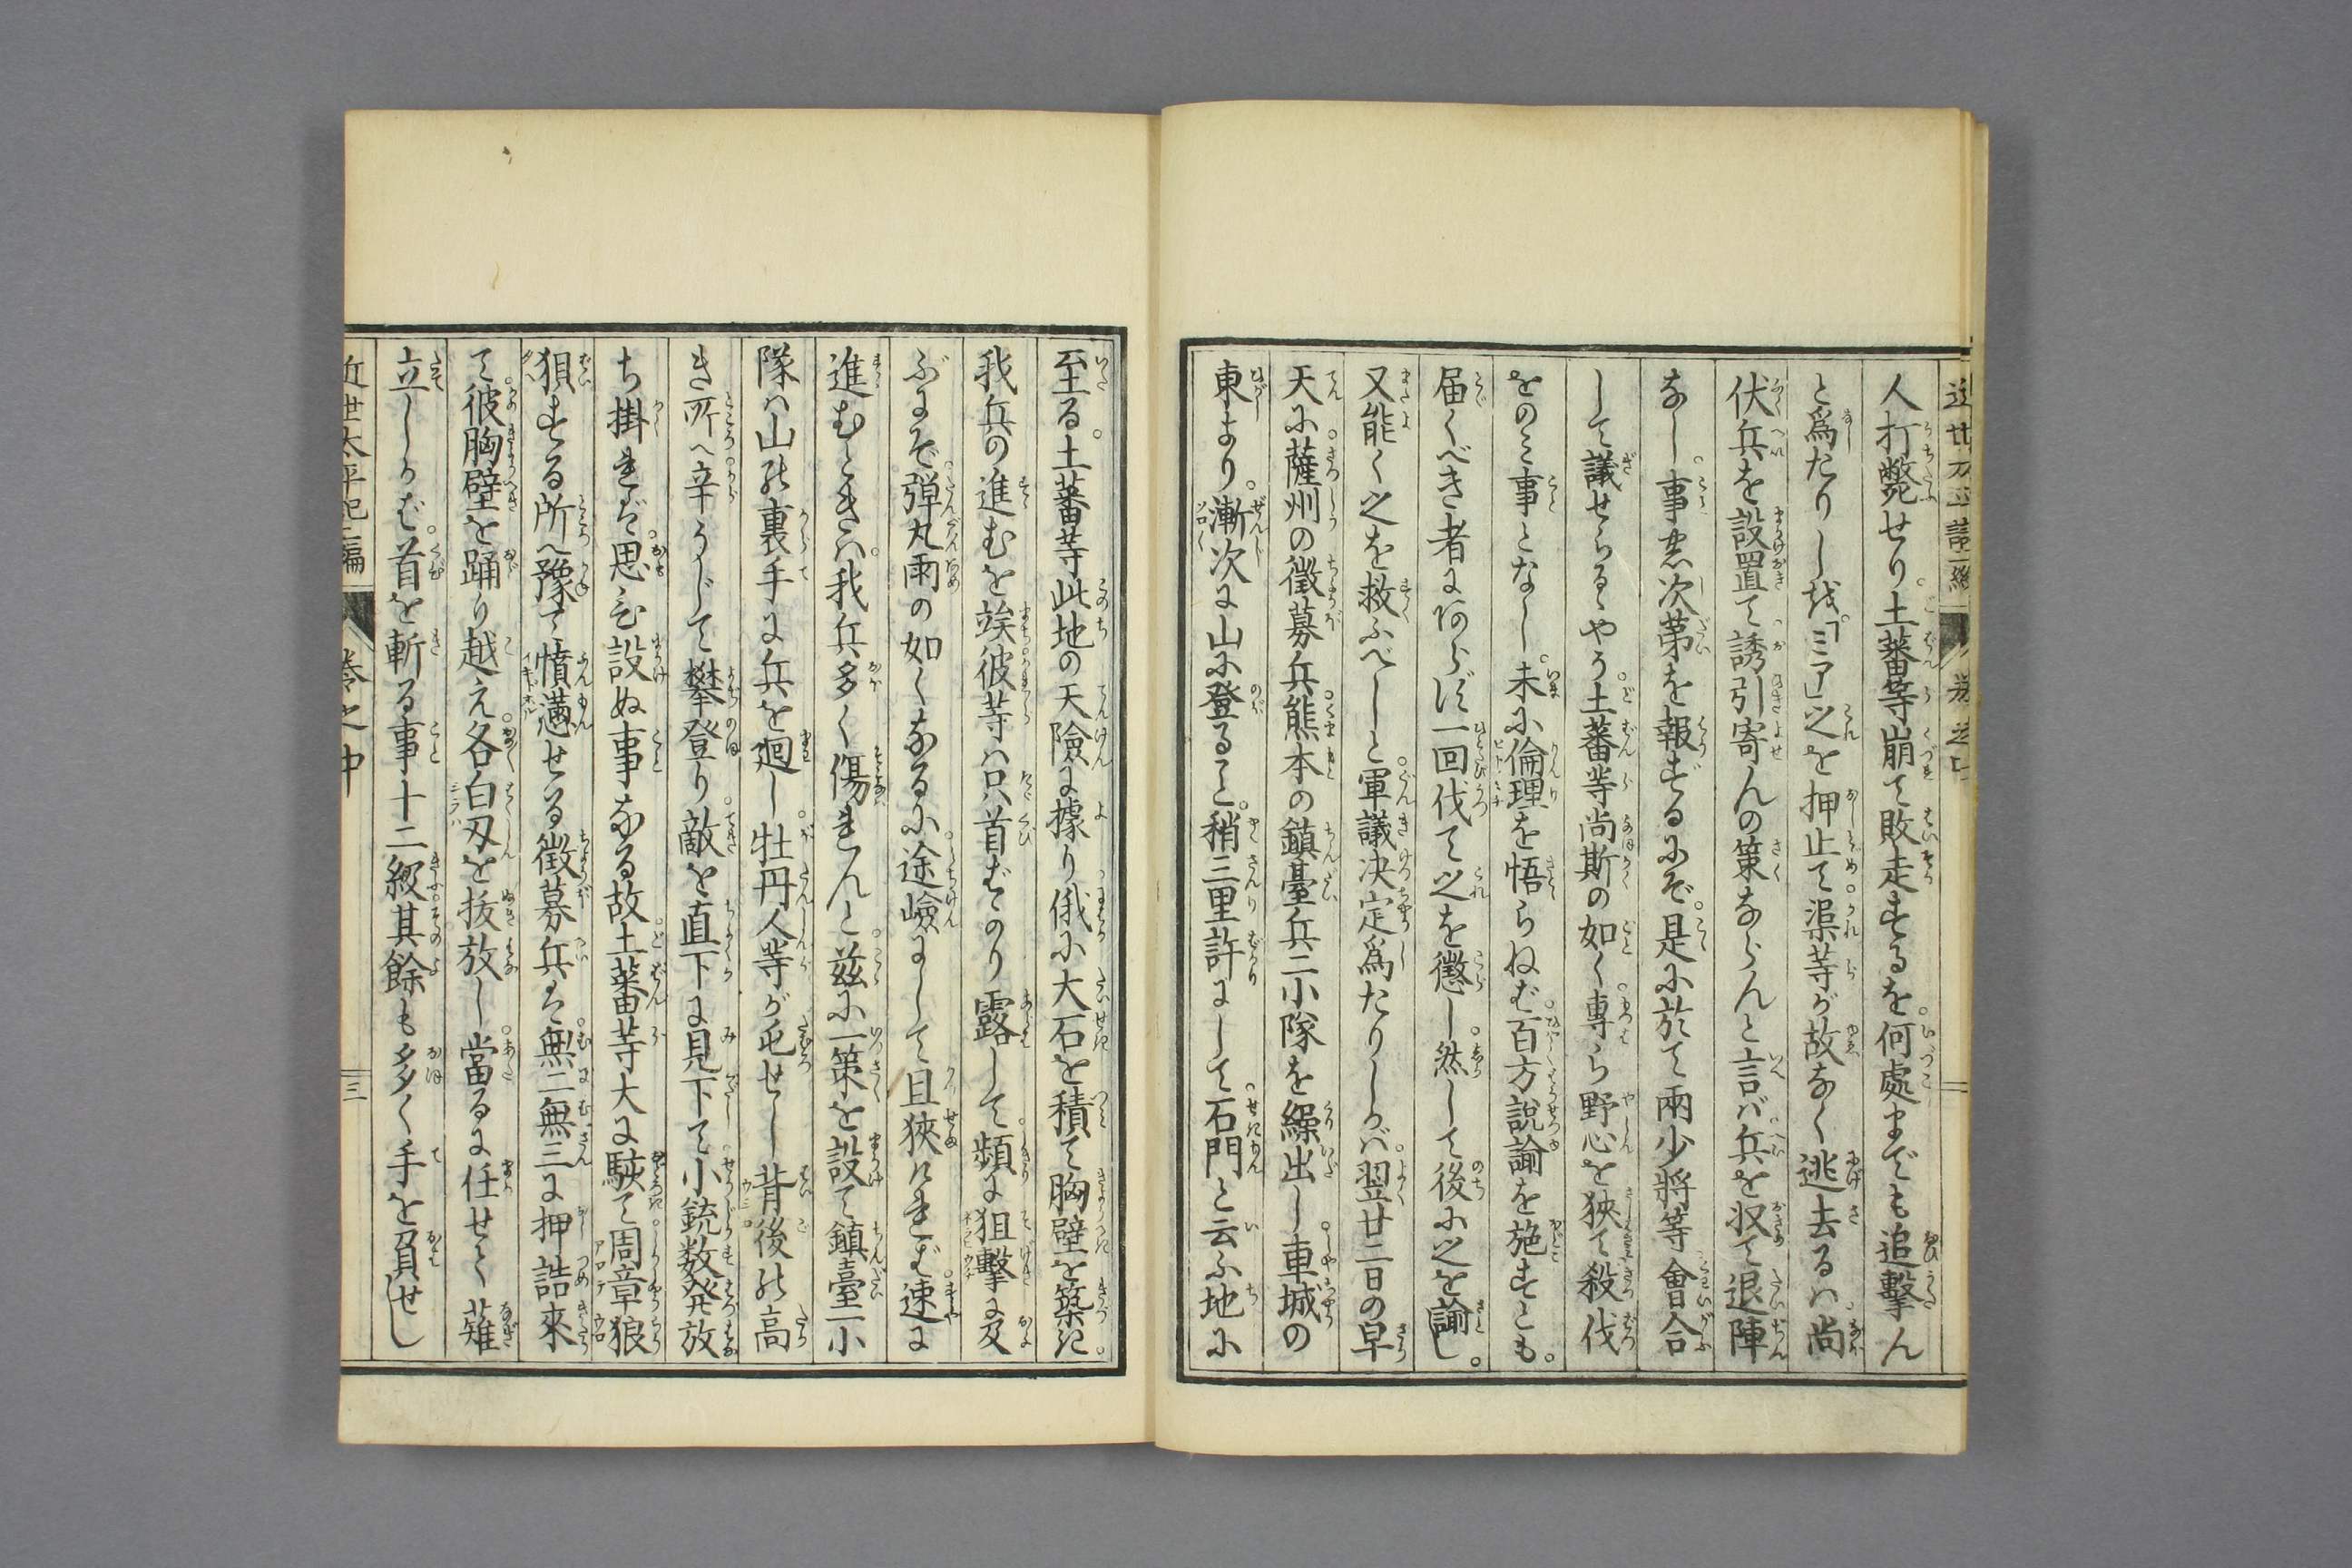 人打斃せり。土蕃等崩て敗走するを。何處までも追擊ん
と爲たりしが。「ミア」之を押止て。渠等が故なく逃去るハ。尚
伏兵を設置て。誘引寄んの策ならんと言バ。兵を収て退陣
なし。事の次第を報ずるにぞ。是に於て兩少將等。會合
して議せらるゝやう。土蕃等尚斯の如く。專ら野心を狹て殺伐
をのミ事となし。未に倫理を悟らねば。百方説諭を施すとも。
届くべき者にあらず。一回伐て之を懲し。然して後に之を諭し。
又能く之を救ふべしと。軍議决定爲たりしかバ。翌廿二日の早
天に。薩州の徴募兵。熊本の鎮臺兵二小隊を繰出し。車城の
東より。漸次に山に登ると。稍三里許にして。石門と云ふ地に
至る。土蕃等此地の天險に據り。俄に大石を積て胸壁を築き。
我兵の進むを竢。彼等ハ只首ばかり露して。頻に狙擊に及
ぶにぞ。弾丸雨の如くなるに。途嶮にして且狹ければ。速に
進むときハ。我兵多く傷れんと。茲に一策を設て。鎮臺一小
隊ハ山の裏手に兵を廻し。牡丹人等が屯せし背後の高
き所へ。辛うじて攀登り。敵を直下に見下て。小銃数発放
ち掛ければ。思ひ設ぬ事なる故。土蕃等大に駭て。周章狼
狽する所へ。豫て憤懣せる徴募兵ハ。無二無三に押詰來
て。彼胸壁を踊り越え。各白刄を抜放し。當るに任せて薙
立しかば。首を斬る事十二級。其餘も多く手を負せし
近世太平記二編　巻之中　三